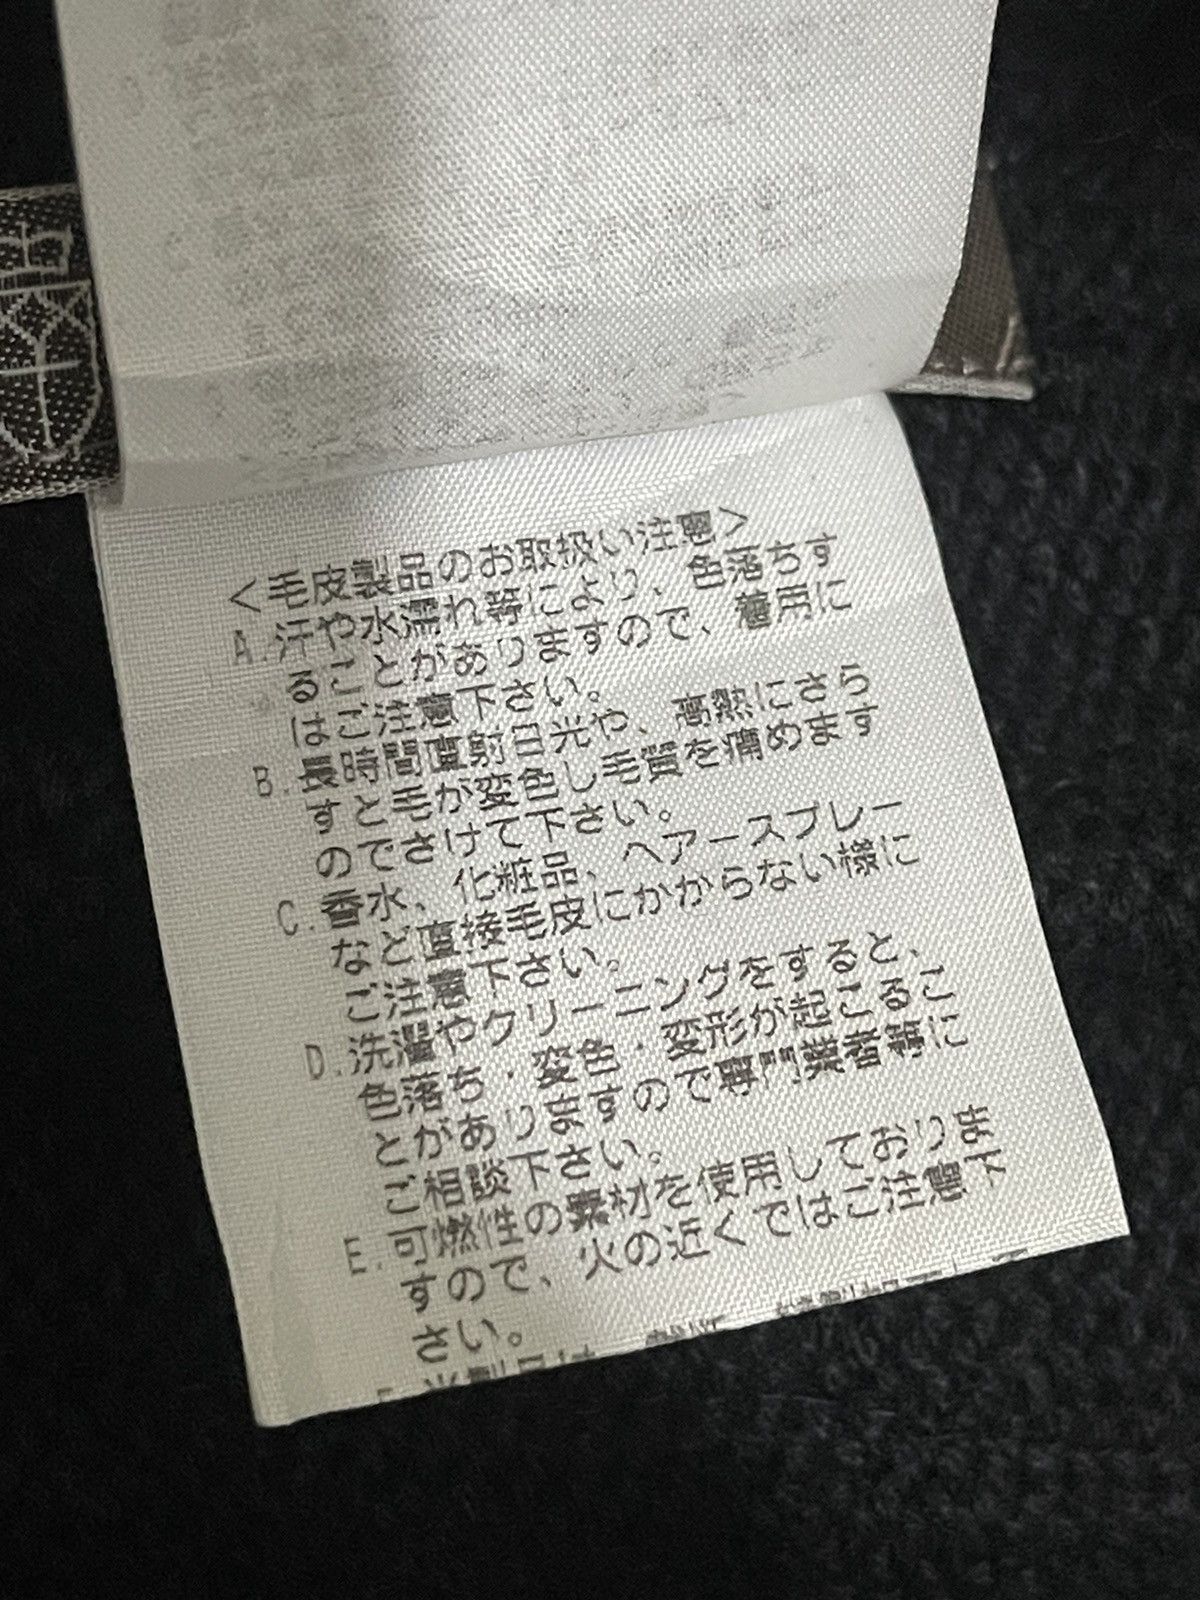 <毛皮製品のお取扱い注意>
A.汗や水濡れ等により、色落ちす
ることがありますので、着用に
はご注意下さい。
B.長時間直射日光や、高熱にさら
すと毛が変色し毛質を痛めます
のでさけて下さい。
C.香水、化粧品、ヘアースプレー
など直接毛皮にかからない様に
ご注意下さい。
D.洗濯やクリーニングをすると、
色落ち・変色・変形が起こるこ
とがありますので専門業者様に
ご相談下さい。
E.可燃性の素材を使用しておりま
すので、火の近くではご注意下
さい。